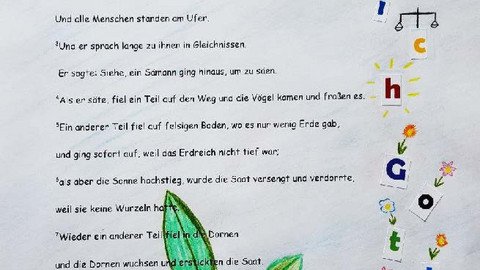 Und alle Menschen standen am Ufer.
³Und er sprach lange zu ihnen in Gleichnissen.
Er sagte: Siehe, ein Sämann ging hinaus, um zu säen.
⁴Als er säte, fiel ein Teil auf den Weg und die Vögel kamen und fraßen es.
⁵Ein anderer Teil fiel auf felsigen Boden, wo es nur wenig Erde gab,
und ging sofort auf, weil das Erdreich nicht tief war;
⁶als aber die Sonne hochstieg, wurde die Saat versengt und verdorrte,
weil sie keine Wurzeln hatte.
⁷Wieder ein anderer Teil fiel in die Dornen
und die Dornen wuchsen und erstickten die Saat.
I
c
h
G
o
t